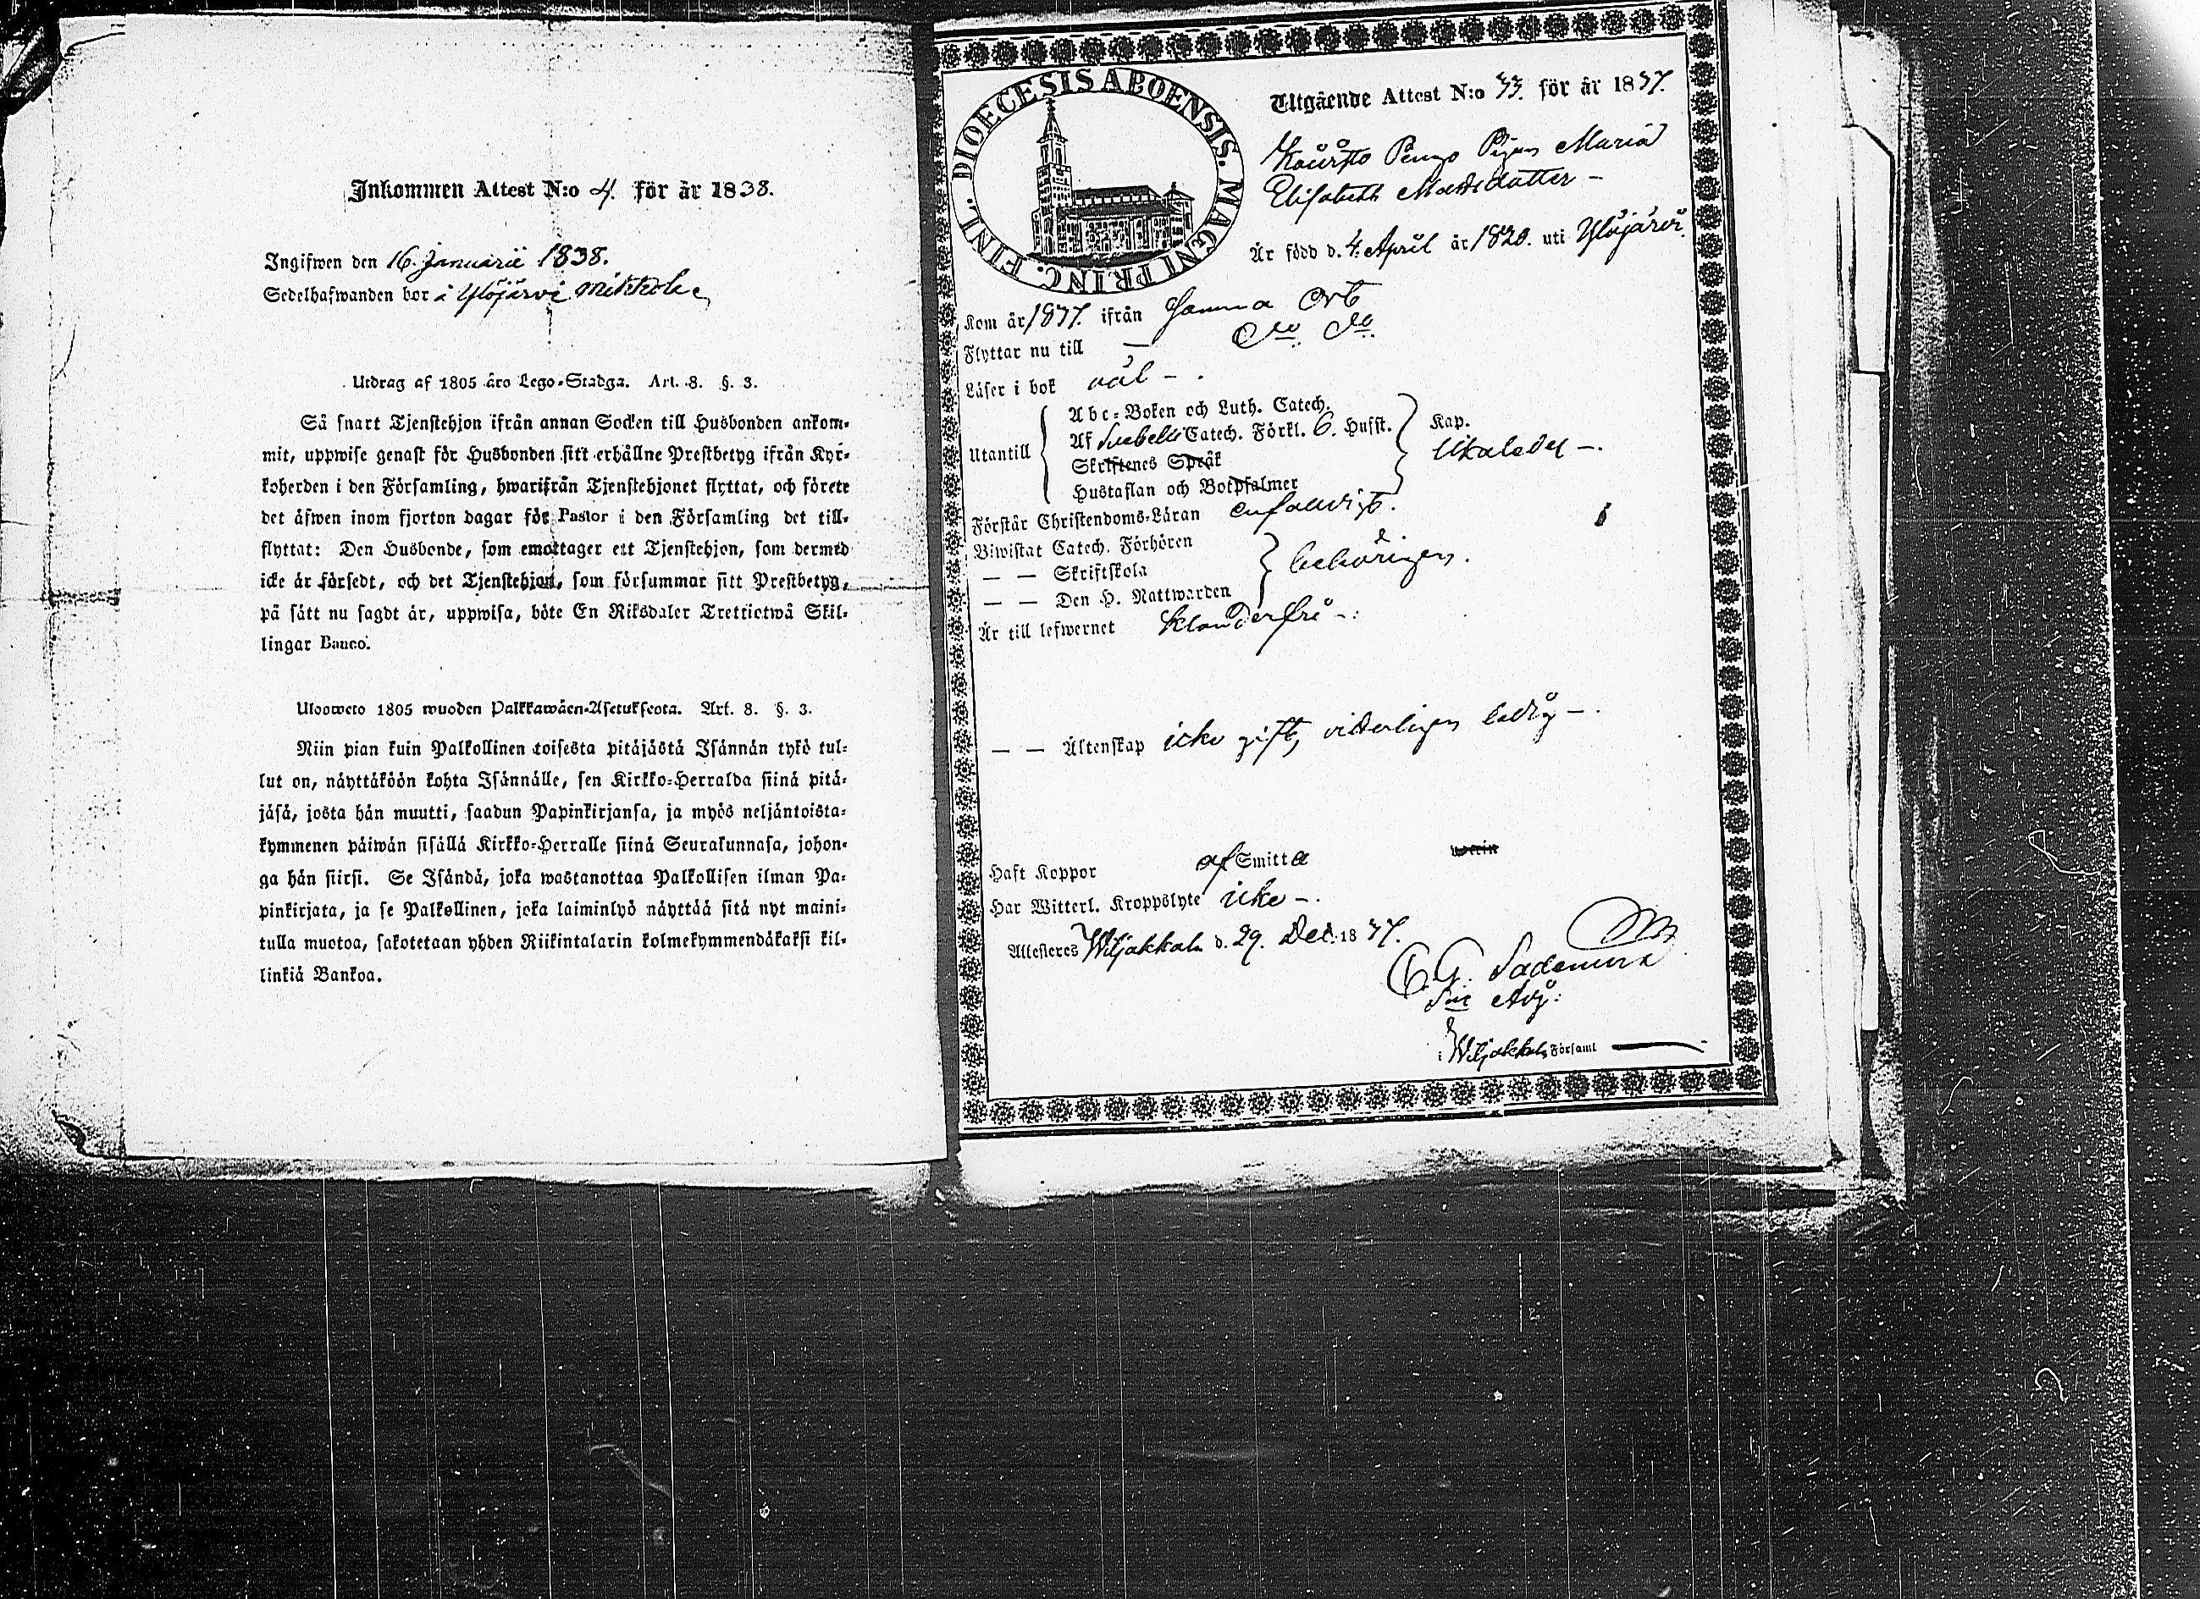 Inkommen Attest N:o 4. för år 1838.
Ingifwen den 16. Januarii 1838.
Sedelhafwanden bor i Ylöjärvi Mikkola
Utdrag af 1805 års Lego-Stadga. Art. 8. §. 3.
Så snart Tjenstehjon ifrån annan Socken till Husbonden ankom-
mit, uppwise genast för Husbonden sitt erhållne Prestbetyg ifrån Kyr-
koherden i den Församling, hwarifrån Tjenstehjonet flyttat, och förete
det äfwen inom fjorton dagar för Pastor i den Församling det till-
flyttat: Den Husbonde, som emottager ett Tjenstehjon, som dermed
icke är försedt, och det Tjenstehjon, som försummar sitt Prestbetyg,
på sätt nu sagdt är, uppwisa, böte En Riksdaler Trettiotwå Skil-
lingar Banco.
Ulosweto 1805 wuoden Palkkawäen-Asetuksesta. Art. 8. §. 3.
Niin pian kuin Palkollinen toisesta pitäjästä Isännän tykö tul-
lut on, näyttäköön kohta Isännälle, sen Kirkko-Herralda siinä pitä-
jäsä, josta hän muutti, saadun Papinkirjansa, ja myös neljäntoista-
kymmenen päiwän sisällä Kirkko-Herralle siinä Seurakunnasa, johon-
ga hän siirsi. Se Isändä, joka wastanottaa Palkollisen ilman Pa-
pinkirjata, ja se Palkollinen, joka laiminlyö näyttää sitä nyt maini-
tulla muotoa, sakotetaan yhden Riikintalarin kolmekymmendäkaksi kil-
linkiä Bankoa.
DIOECESIS ABOENSIS. MAGNI PRINC. FINL.
Utgående Attest N:o 33. för år 1837.
Pigan Maria
Elisabeth Mattsdotter -
Är född d. 4. April år 1820. uti Ylöjärvi
Kom år 1837. ifrån Samma Ort
Flyttar nu till — do do
Läser i bok väl -.
Utantill
Abc-Boken och Luth. Catech.
Af Svebelli Catech. Förkl. 6. Hufst.
Skriftenes Språk
Hustaflan och Botpsalmer
Kap.
Förstår Christendoms-Läran enfaldigt.
Biwistat Catech. Förhören
— — Skriftskola
— — Den H. Nattwarden
behörigen.
Är till lefwernet klanderfri -.
— — Äktenskap icke gift, vitterligen ledig -.
Haft Koppor af Smitta
Har Witterl. Kroppslyte icke -.
Attesteres Wiljakkala d. 29. Dec. 1837.
i Wiljakkala Församl